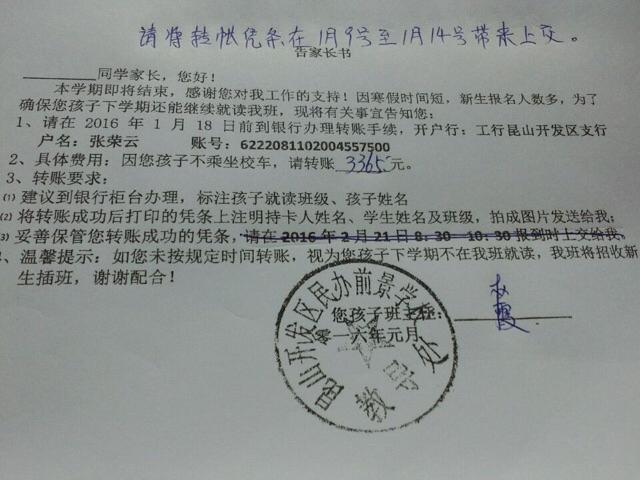 请将转帐凭条在1月9号至1月14号带来上交。
告家长书
________同学家长，您好！
本学期即将结束，感谢您对我工作的支持！因寒假时间短，新生报名人数多，为了
确保您孩子下学期还能继续就读我班，现将有关事宜告知您：
1、请在 2016 年 1 月 18 日前到银行办理转账手续，开户行：工行昆山开发区支行
户名：张荣云 账号：6222081102004557500
2、具体费用：因您孩子不乘坐校车，请转账 3365 元。
3、转账要求：
⑴ 建议到银行柜台办理，标注孩子就读班级、孩子姓名
⑵ 将转账成功后打印的凭条上注明持卡人姓名、学生姓名及班级，拍成图片发送给我；
⑶ 妥善保管您转账成功的凭条，请在 2016 年 2 月 21 日 8：30—10：30 报到时上交给我。
、温馨提示：如您未按规定时间转账，视为您孩子下学期不在我班就读，我班将招收新
生插班，谢谢配合！
您孩子班主任：赵霞
一六年元月
昆山开发区民办前景学校
教导处